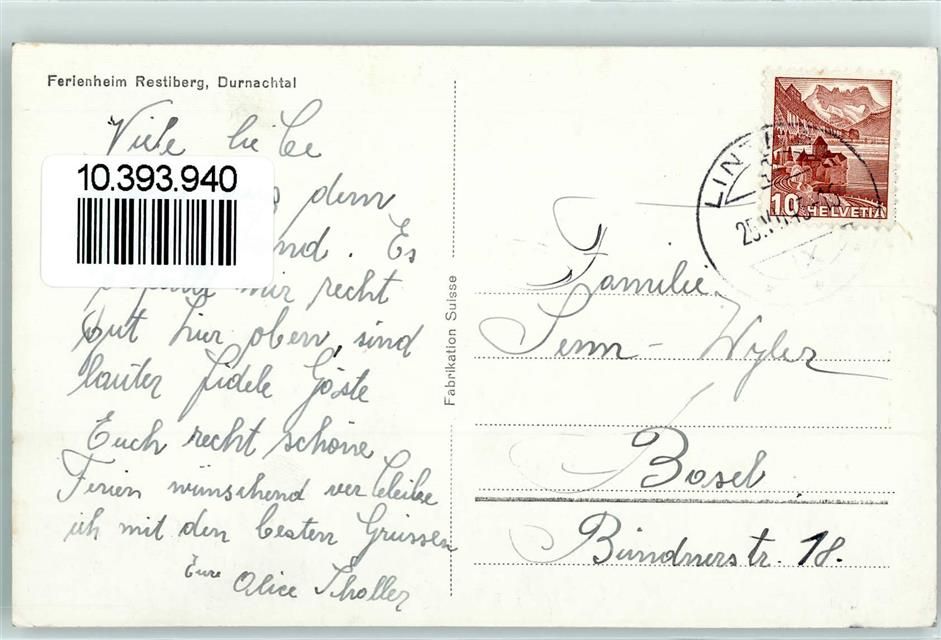 Ferienheim Restiberg, Durnachtal
Viele liebe
10.393.940
dem
Es
mir recht
gut hier oben, sind
lauter fidele Gäste
Euch recht schöne
Ferien wünschend verbleibe
ich mit den besten Grüssen
Eure Alice
Fabrikation Suisse
10 HELVETIA
Familie
Senn-Wyler
Basel
Bündnerstr. 18.